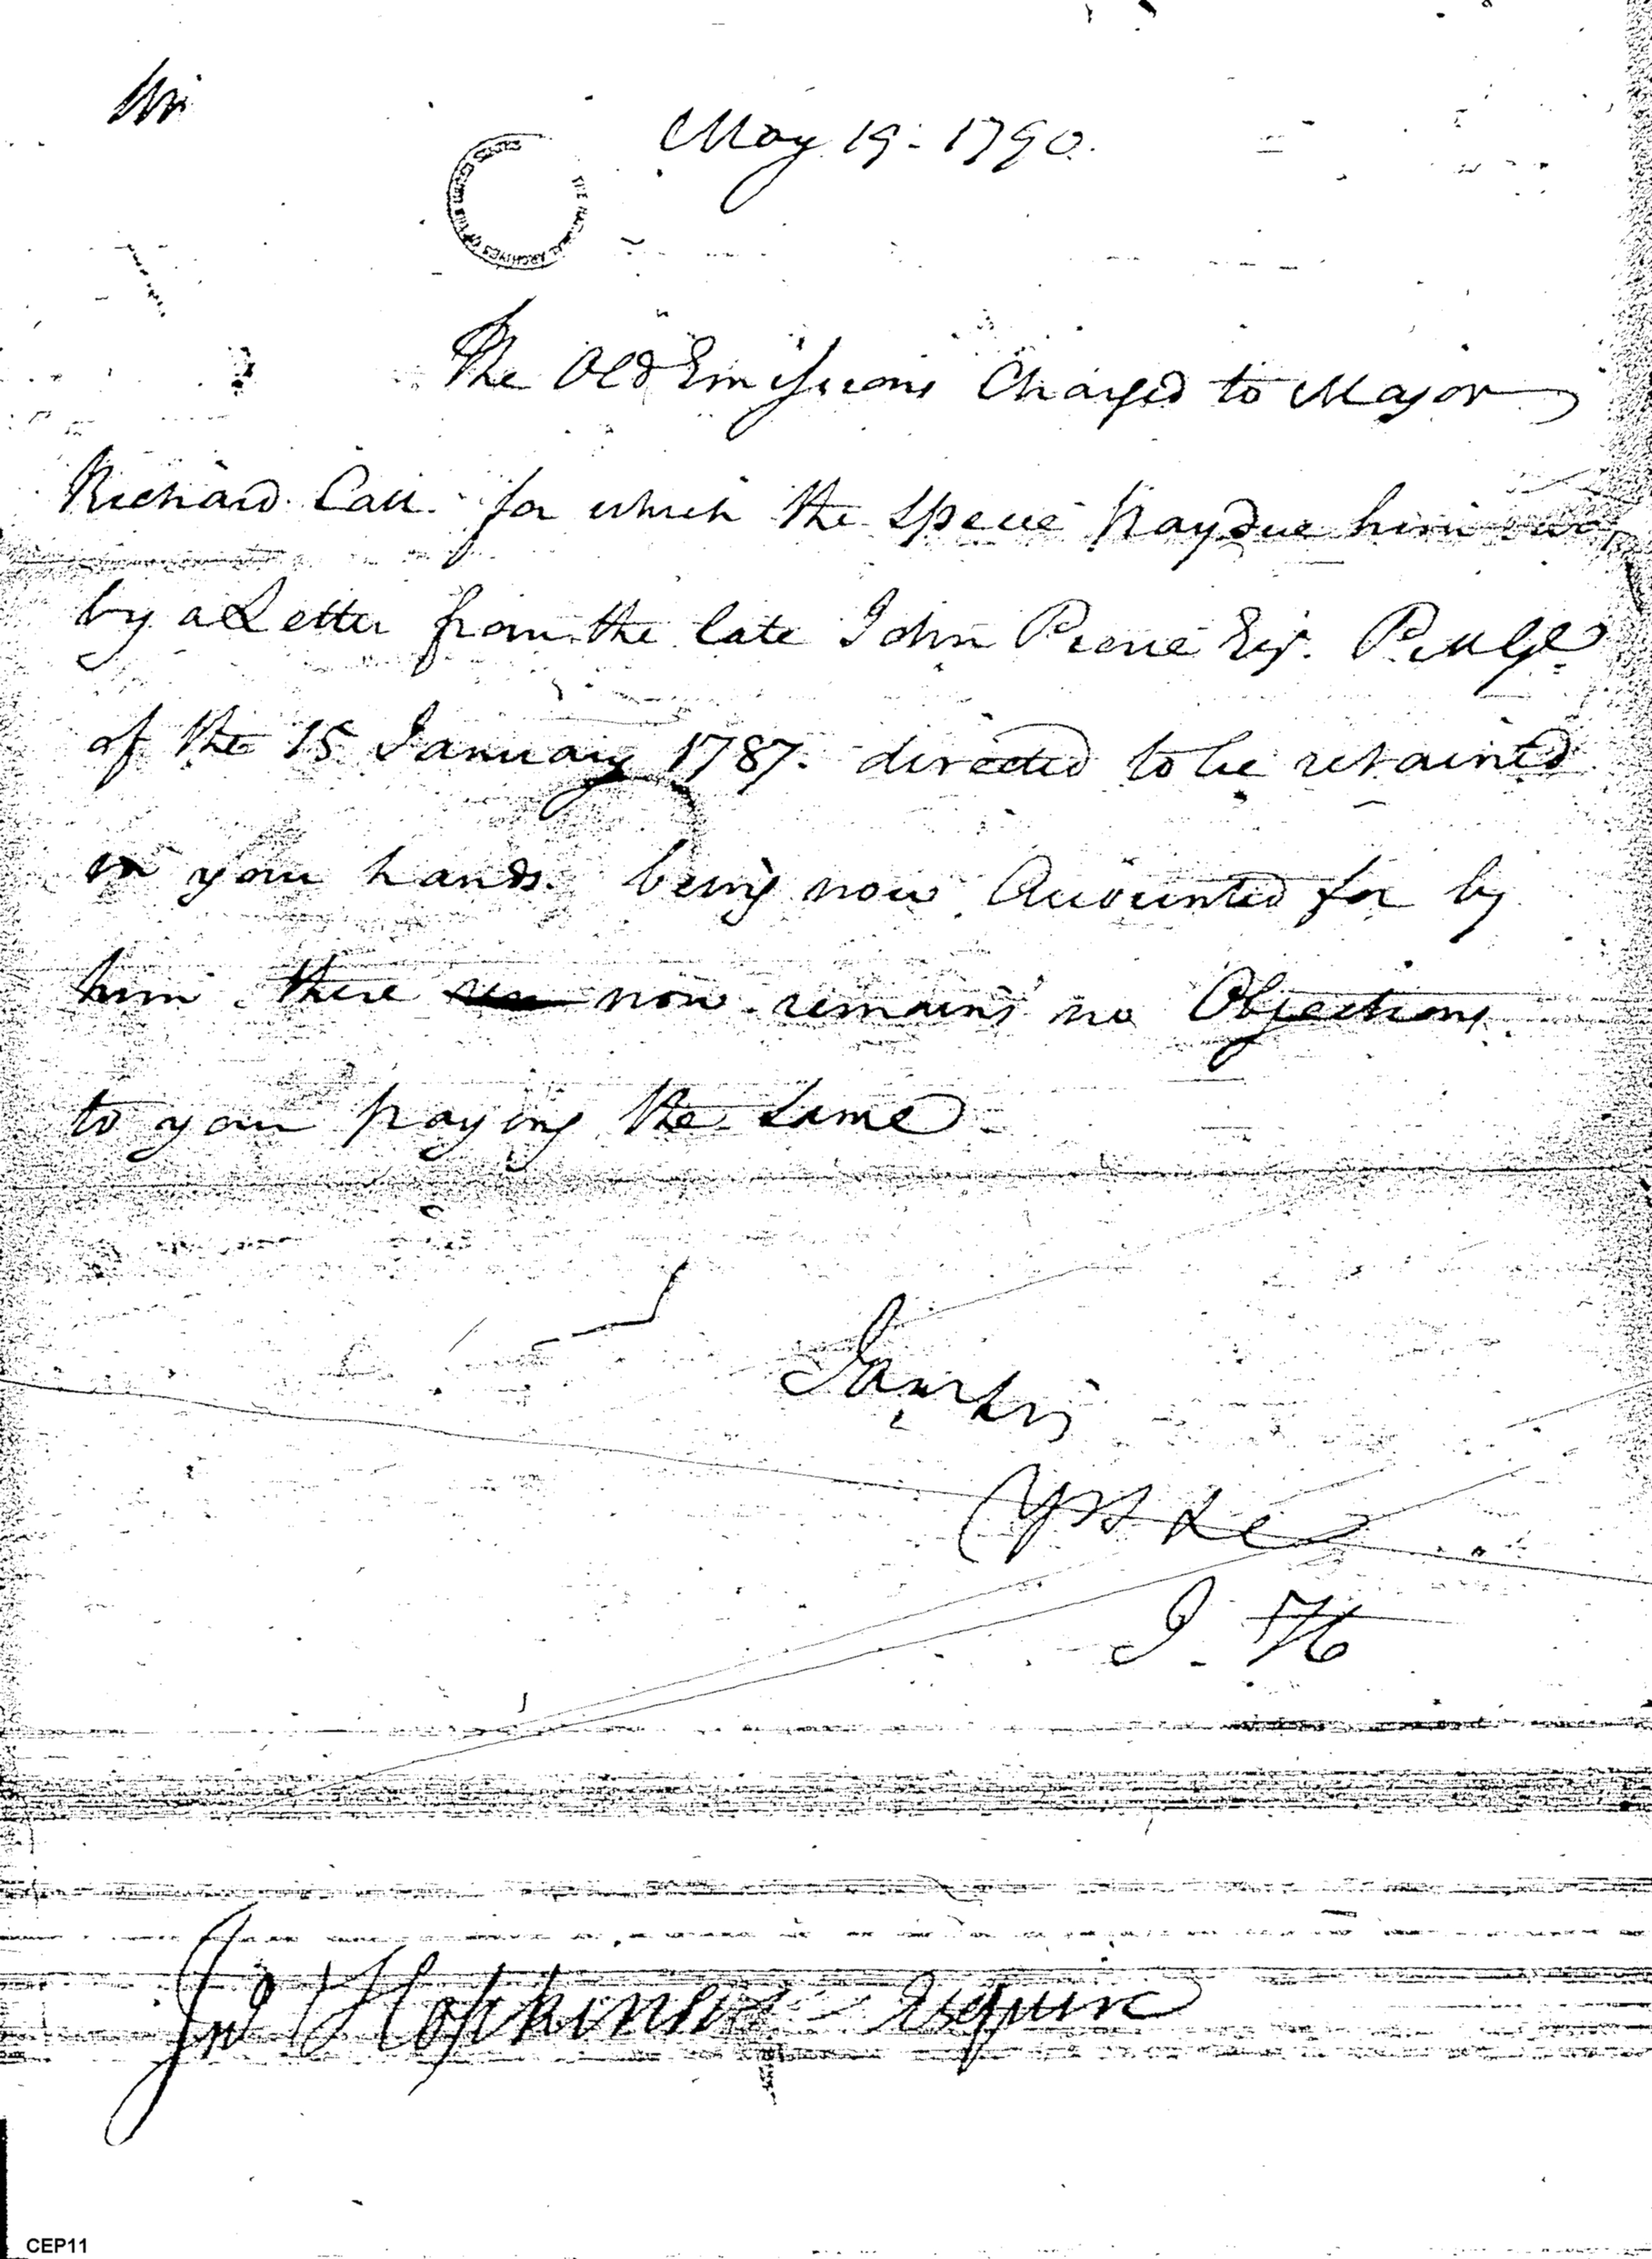 Sir
May 19 - 1790.
THE NATIONAL ARCHIVES OF THE UNITED STATES
The Old Emissions Charged to Major
Richard Call. for which the Specie Pay due him was
by a Letter from the late John Pierce Esq. P. M Gl
of the 15 January 1787. directed to be retained
in your hands. being now Accounted for by
him. there now remains no Objections
to your paying the Same.
I am Sir
J. H
Jno Hopkins Esquire
CEP11